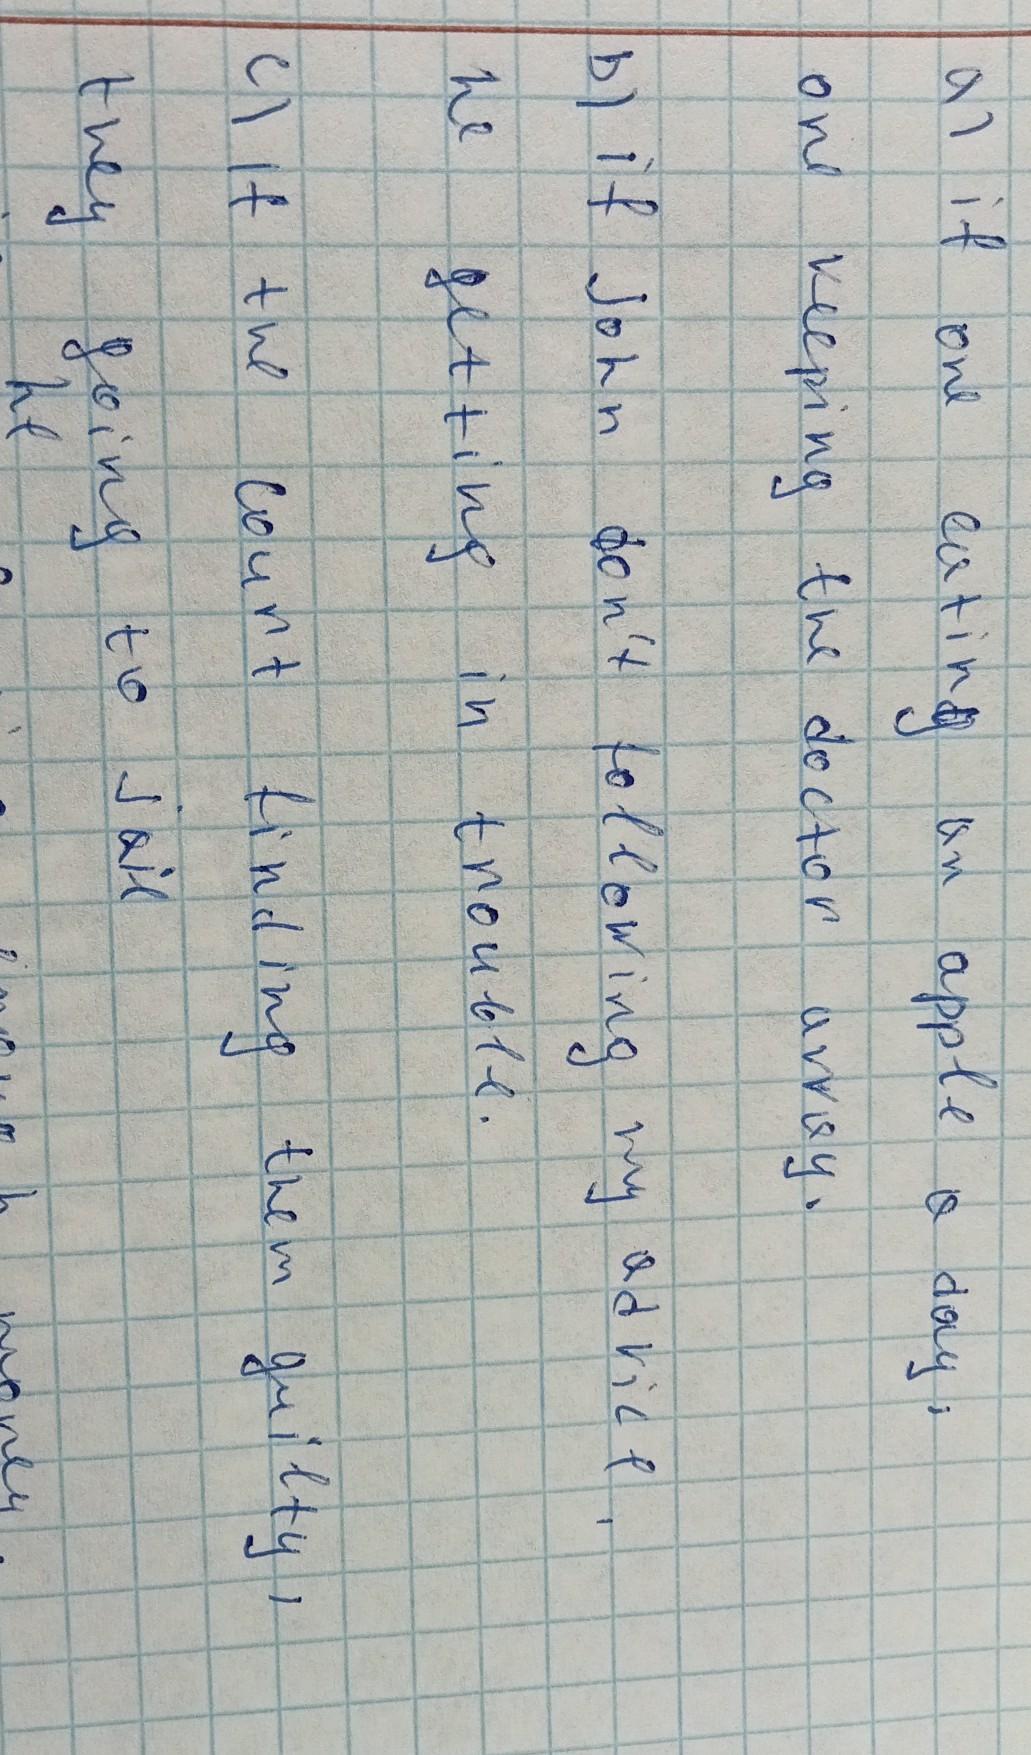 a) if one eating an apple a day,
one keeping the doctor away.
b) if John don't following my advice,
he getting in trouble.
c) If the court finding them guilty,
they going to jail
he
money.